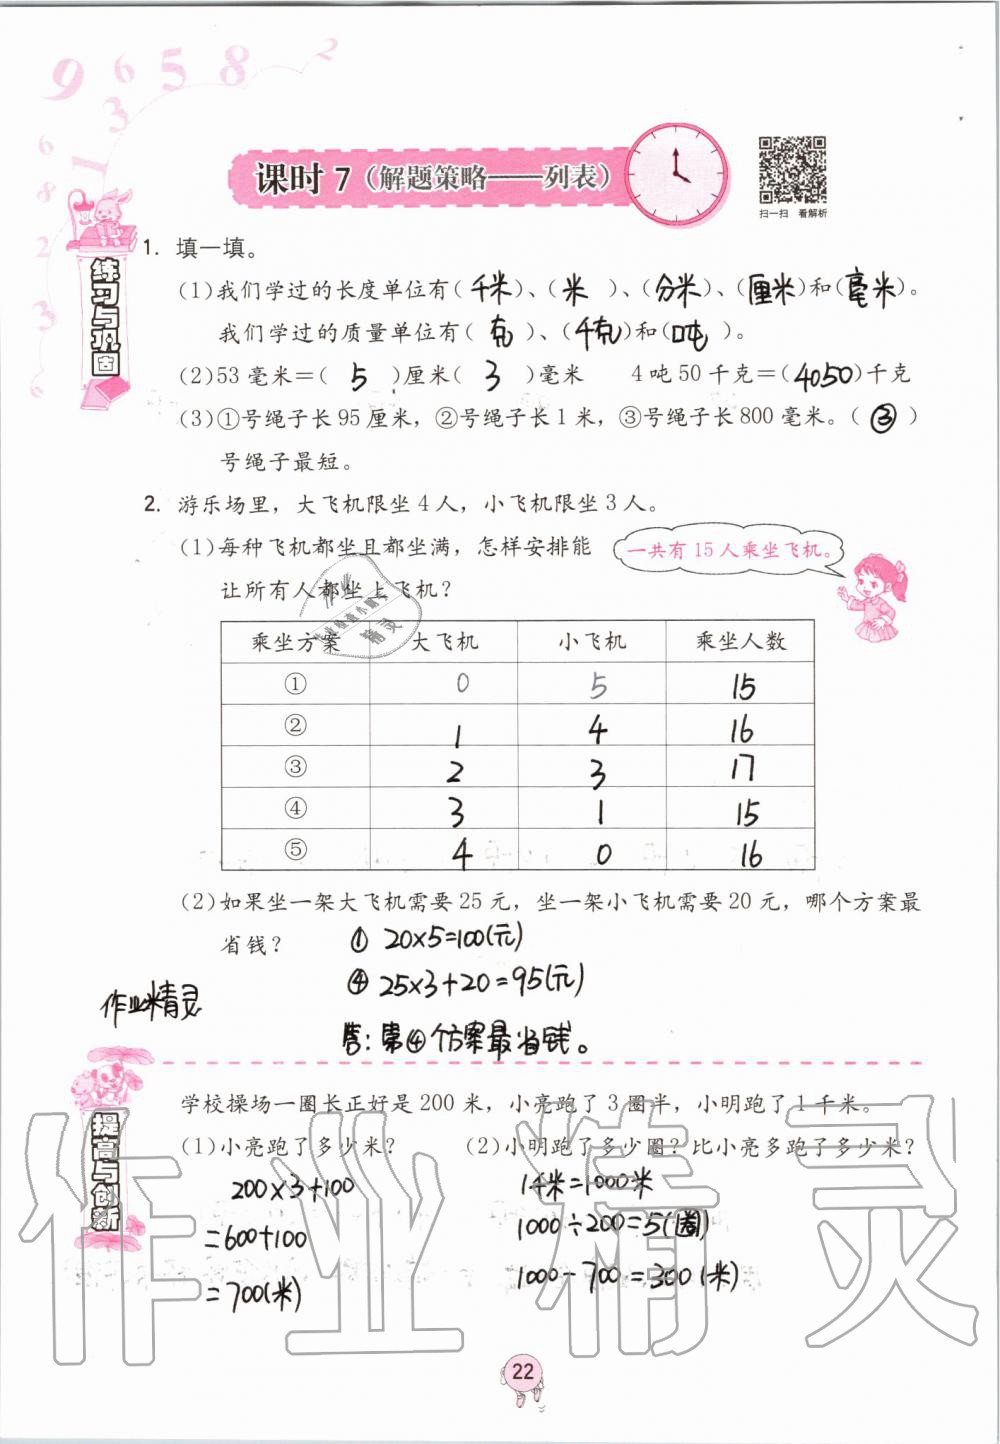 9 6 5 8 2
3
1
6
8
2
3
6
课时 7（解题策略——列表）
扫一扫 看解析
练习与巩固
1. 填一填。
(1)我们学过的长度单位有(千米)、(米)、(分米)、(厘米)和(毫米)。
我们学过的质量单位有(克)、(千克)和(吨)。
(2)53毫米=(5)厘米(3)毫米 4吨50千克=(4050)千克
(3)①号绳子长95厘米，②号绳子长1米，③号绳子长800毫米。(③)
号绳子最短。
2. 游乐场里，大飞机限坐4人，小飞机限坐3人。
(1)每种飞机都坐且都坐满，怎样安排能
让所有人都坐上飞机？
一共有15人乘坐飞机。
乘坐方案 大飞机 小飞机 乘坐人数
① 0 5 15
② 1 4 16
③ 2 3 17
④ 3 1 15
⑤ 4 0 16
(2)如果坐一架大飞机需要25元，坐一架小飞机需要20元，哪个方案最
省钱？ ① 20×5=100(元)
④ 25×3+20=95(元)
作业精灵
答：第④个方案最省钱。
提高与创新
学校操场一圈长正好是200米，小亮跑了3圈半，小明跑了1千米。
(1)小亮跑了多少米？ (2)小明跑了多少圈？比小亮多跑了多少米？
200×3+100 1千米=1000米
=600+100 1000÷200=5(圈)
=700(米) 1000-700=300(米)
作业精灵
22